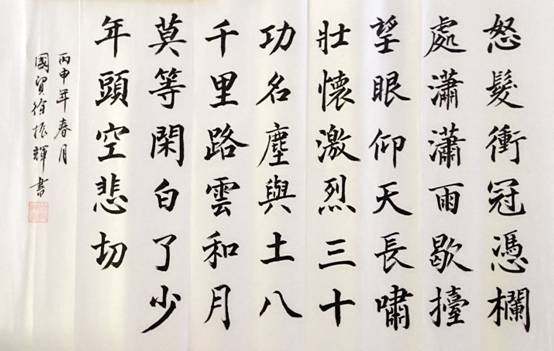 怒髮衝冠憑欄
處瀟瀟雨歇擡
望眼仰天長嘯
壯懷激烈三十
功名塵與土八
千里路雲和月
莫等閑白了少
年頭空悲切
丙申年春月
國貿徐振輝書